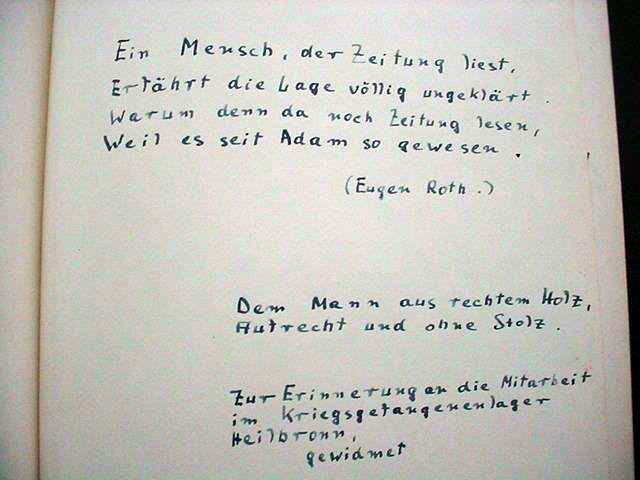 Ein Mensch, der Zeitung liest,
Erfährt die Lage völlig ungeklärt.
Warum denn da noch Zeitung lesen,
Weil es seit Adam so gewesen.
(Eugen Roth.)
Dem Mann aus rechtem Holz,
Aufrecht und ohne Stolz.
Zur Erinnerung an die Mitarbeit
im Kriegsgefangenenlager
Heilbronn,
gewidmet